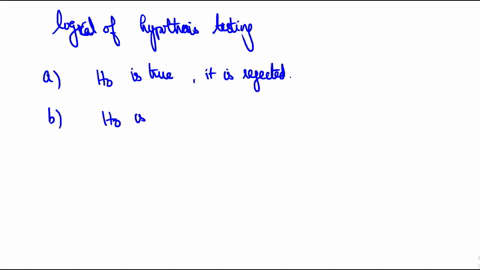 logical of hypothesis testing
a) H0 is true, it is rejected.
b) H0 is